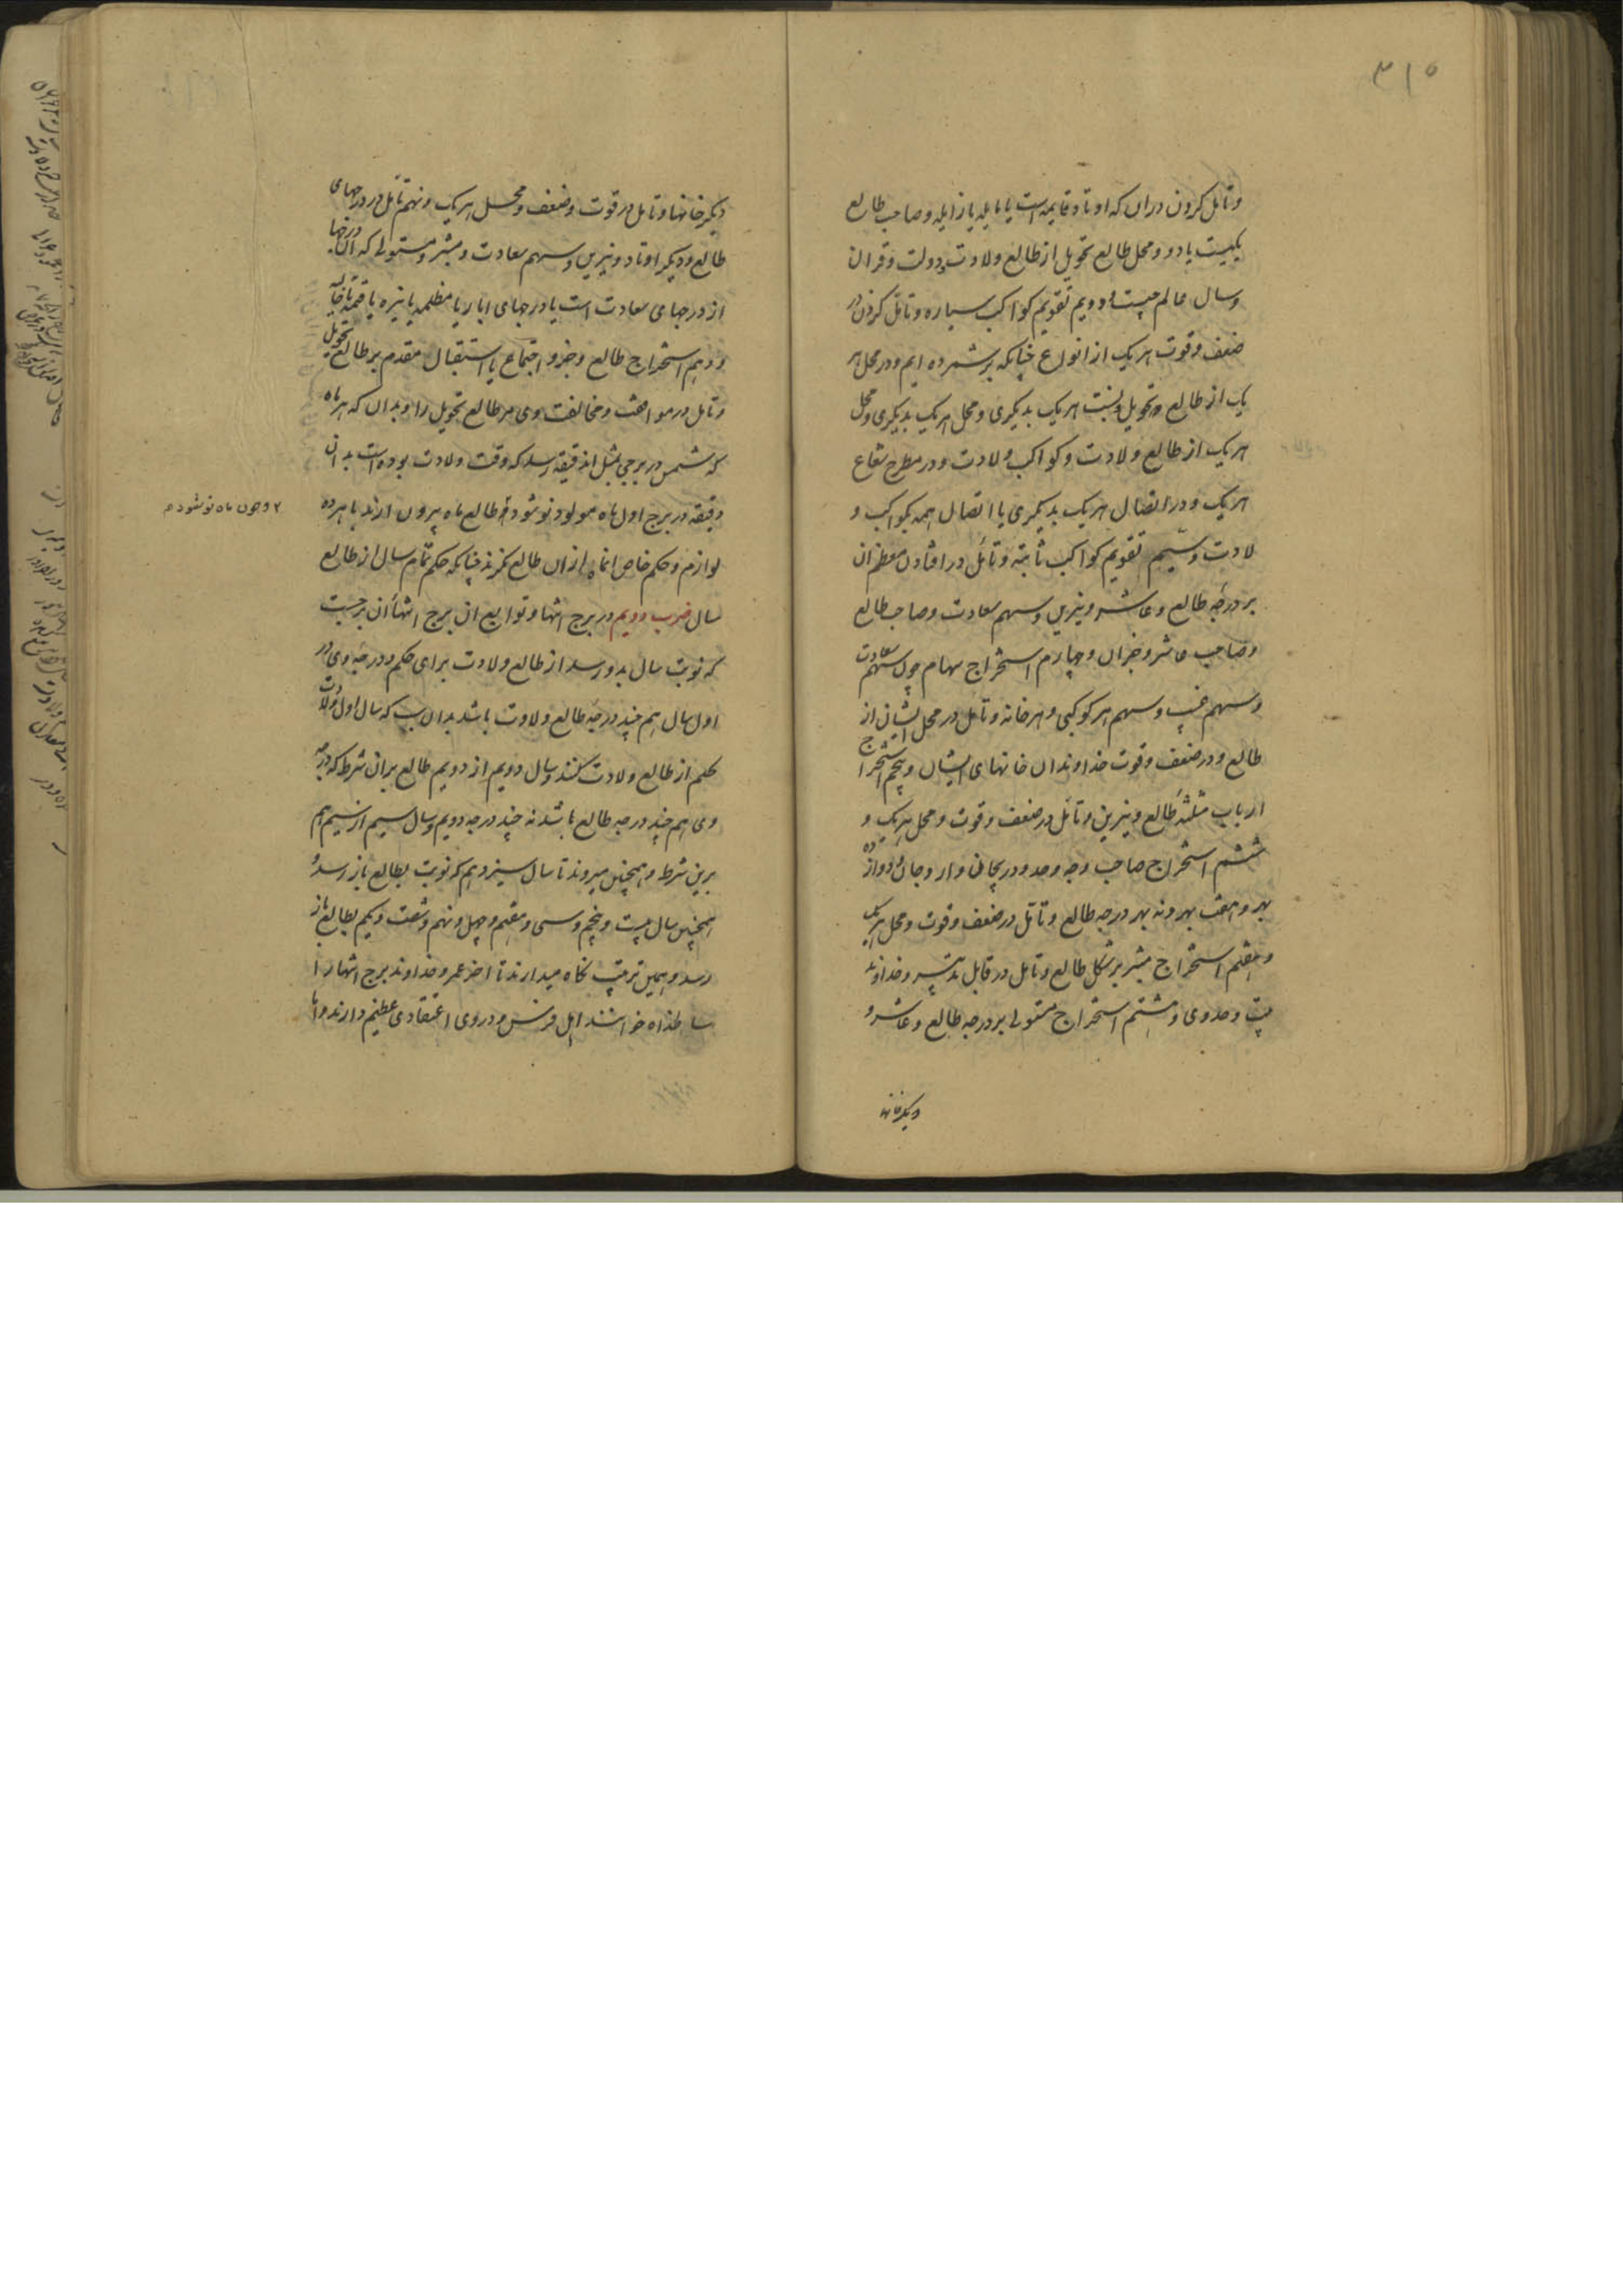 ۳۱۵
وتأمل کردن دران که اوتاد قایمه است یا مایله یا زایله وصاحب طالع
یکیست یا دو ومحل طالع تحویل از طالع ولادت ودولت وقران
وسال عالم چیست ودویم تقویم کواکب سیاره وتأمل کردن در
ضعف وقوت هریک از انواع چنانکه برشمرده ایم ودر محل هر
یک از طالع وتحویل ونسبت هریک بدیکری ومحل هریک بدیکری ومحل
هریک از طالع ولادت وکواکب ولادت ودر مطرح شعاع
هریک ودر اتصال هریک بدیکری یا اتصال همه بکواکب و
لادت وسیم تقویم کواکب ثابته وتأمل در افتادن معظم ان
بر درجه طالع وعاشر ونیرین وسهم سعادت وصاحب طالع
وصاحب عاشر وجزان وچهارم استخراج سهام چون سهم سعادت
وسهم غیب وسهم هر کوکبی وهر خانه وتأمل در محل ایشان از
طالع ودر ضعف وقوت خداوندان خانهای ایشان وپنجم استخراج
ارباب مثلثه طالع ونیرین وتأمل در ضعف وقوت ومحل هریک و
ششم استخراج صاحب وجه وحد ودریجان وار وجان ودوازده
بهر وهفت بهر ونه بهر درجه طالع وتأمل در ضعف وقوت ومحل هریک
وهفتم استخراج مبتز بر شکل طالع وتأمل در قابل تدبیر وخداوند
بیت وحد وی وهشتم استخراج مستولی بر درجه طالع وعاشر و
دیکر خانها
دیکر خانها وتأمل در قوت وضعف ومحل هریک ونهم تأمل در درجهای
طالع ودیکر اوتاد ونیرین وسهم سعادت ومبتز ومستولی که ان درجها
از درجهای سعادت است یا درجهای ابار یا مظلمه یا نیره یا قتمه یا خالیه
ودهم استخراج طالع وجزو اجتماع یا استقبال مقدم بر طالع تحویل
وتأمل در موافقت ومخالفت وی مر طالع تحویل را وبدان که هر ماه
که شمس در برجی بمثل ان دقیقه رسد که وقت ولادت بوده است بدان
دقیقه در برج اول ماه مولود نو شود وطالع ماه بیرون ارند با هرده
لوازم وحکم خاص انماه ازان طالع نکرند چنانکه حکم تمام سال از طالع
سال ضرب دویم در برج انتها وتوابع ان برج انتها ان برجیست
که نوبت سال بدو رسد از طالع ولادت برای حکم ودرجه وی در
اول سال هم چند درجه طالع ولادت باشد بدان سبب که سال اول ولادت
حکم از طالع ولادت کنند وسال دویم از دویم طالع بران شرط که درجه
وی هم چند درجه طالع باشد نه چند درجه دویم وسال سیم از سیم هم
برین شرط وهمچنین میروند تا سال سیزدهم که نوبت بطالع باز رسد و
همچنین سال بیست وپنجم وسی وهفتم وچهل ونهم وشصت ویکم بطالع باز
رسد وهمین ترتیب نکاه میدارند تا اخر عمر وخداوند برج انتها را
سالخداه خوانند اهل فرس ودر وی اعتقادی عظیم دارند واما